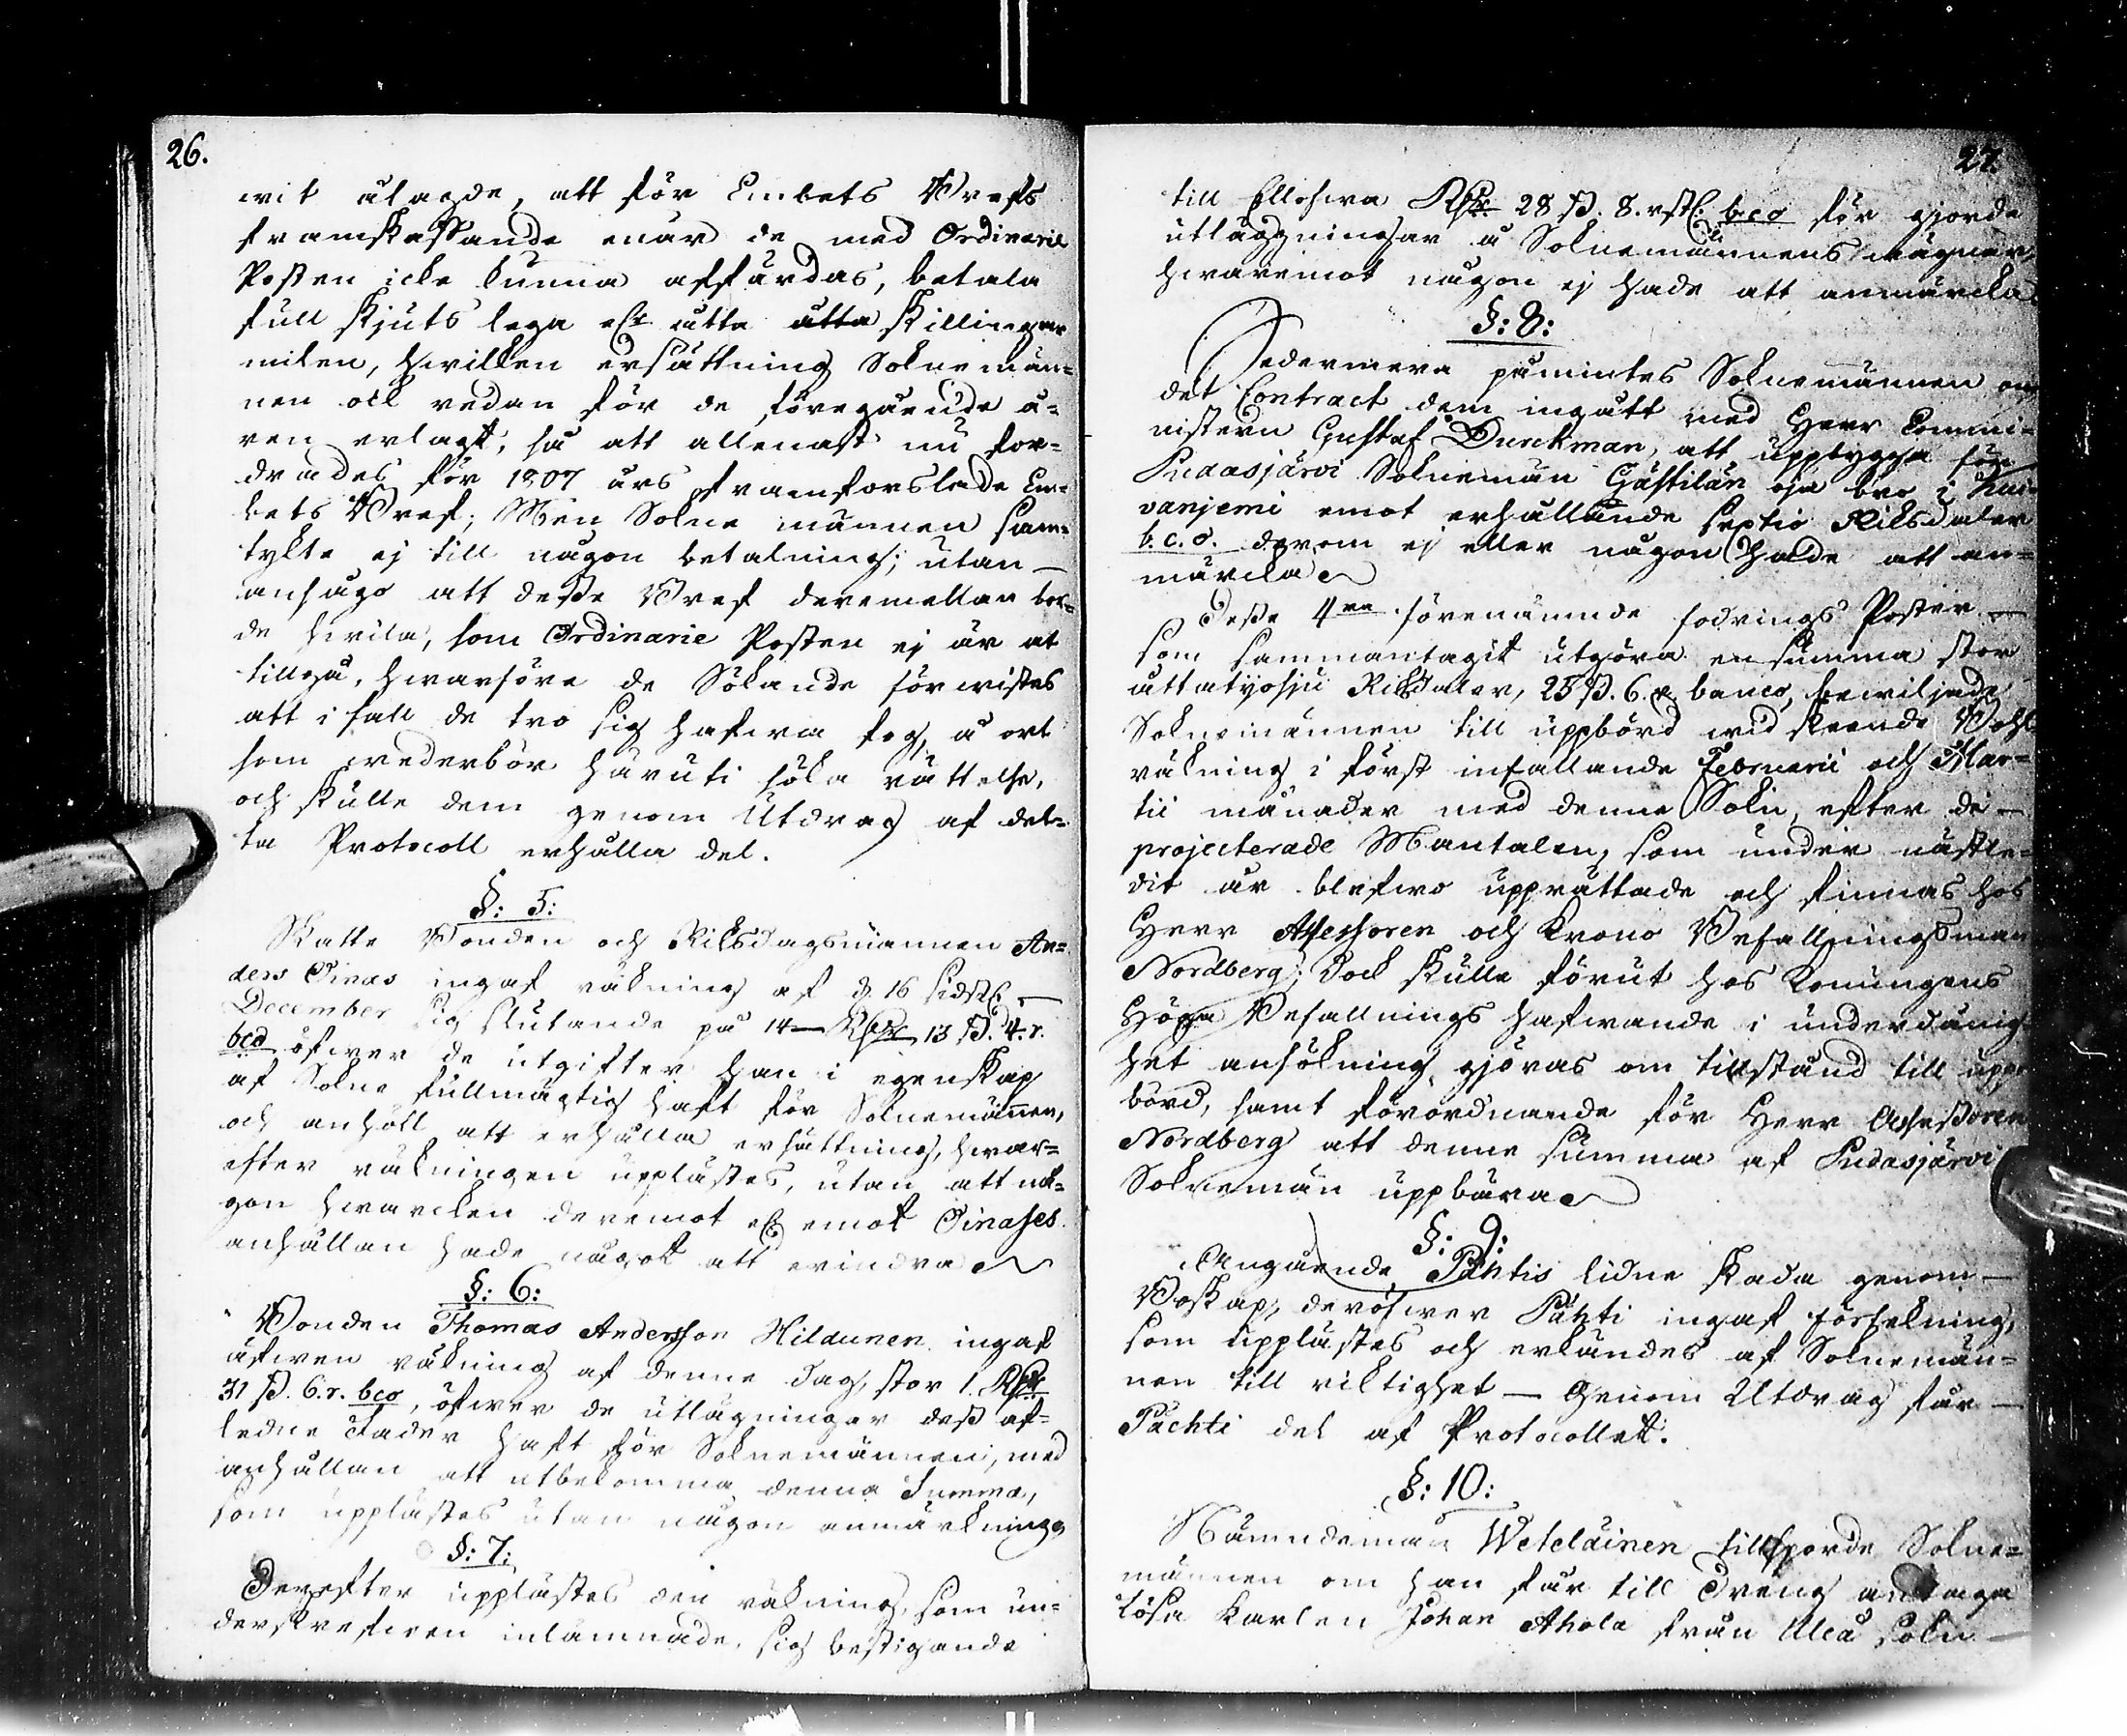 26.
vit ålagde, att för Embets Brefs
framskaffande enär de med Ordinarie
Posten icke kunna affärdas, betala
full skjuts lega elr åtta åtta skillingar
milen, hvilken ersättning Soknemän=
nen ock redan för de föregående å=
ren erlagt, så att allenast nu for=
drades för 1807 års framforslade Em=
bets Bref; Men Sokne männen sam=
tykte ej till någon betalning; utan —
ansågo att desse Bref deremellan bor=
de hvila, som Ordinarie Posten ej är at
tillgå, hvarföre de Sökande förvistes
att i fall de tro sig hafwa fog, å ort
som wederbör häruti söka rättelse,
och skulle dem genom Utdrag af det=
ta Protocoll erhålla del.
§: 5:
Skatte Bonden och Riksdagsmannen An=
ders Oinas ingaf räkning af d. 16 sidstl. —
December sig slutande på 14 — Rdr 13 ß. 4. r.
bco öfwer de utgifter han i egenskap
af Sokne fullmägtig haft för Soknemännen,
och anhöll att erhålla ersättning, hvar=
efter räkningen upplästes, utan att nå=
gon hvarcken deremot elr emot Oinases
anhållan hade något att erindra
§: 6:
Bonden Thomas Andersson Hildunen ingaf
äfwen räkning af denne dag, stor 1. Rdr
31 ß. 6. r. bco, öfwer de utlägningar dess af=
ledne Fader haft för Soknemännen, med
anhållan att utbekomma denna Summa,
som upplästes utan någon anmärkning
§: 7:
Derefter upplästes den räkning, som un=
derskrefwen inlämnade, sig bestigande
27.
till Ellofwa Rdr 28 ß. 8. rstl: bco för gjorde
utläggningar å Soknemännens vägnar,
hvaremot någon ej hade att anmärcka
§: 8:
Sedermera påmintes Soknemännen om
det Contract dem ingått med Herr Commi=
nistern Gustaf Durchman, att uppbygga för
Pudasjärvi Soknemän Gästilän oja bro i Kui=
vanjemi emot erhållande sextio Riksdaler
b.c.o. derom ej eller någon hade att an=
märcka
Desse 4ra förenämnde fodrings Poster —
som sammantagit utgöra en summa stor
åttatijosju Riksdaler, 25 ß. 6. r banco, bewiljade
Soknemännen till uppbörd wid skeende Bohl
räkning i först infallande Februarii och Mar=
tii månader med denne Sokn, efter de —
projecterade Mantalen, som under nästle=
dit år blefwo upprättade och finnas hos
Herr Assessoren och Krono Befallningsman
Nordberg; Dock skulle förut hos Konungens
Höga Befallnings hafwande i underdånig
het ansökning göras om tillstånd till upp
börd, samt förordnande för Herr Assessoren
Nordberg att denne summa af Pudasjärvi
Soknemän uppbära
§: 9:
Angående Pähtis lidne skada genom —
Boskap, deröfwer Pähti ingaf försekning,
som upplästes och erkändes af Soknemän=
nen till riktighet — Genom Utdrag får —
Pächti del af Protocollet.
§: 10:
Nämndeman Weteläinen tillsporde Sokne=
männen om han får till Dreng antaga
lösa Karlen Johan Ahola från Uleå sokn —